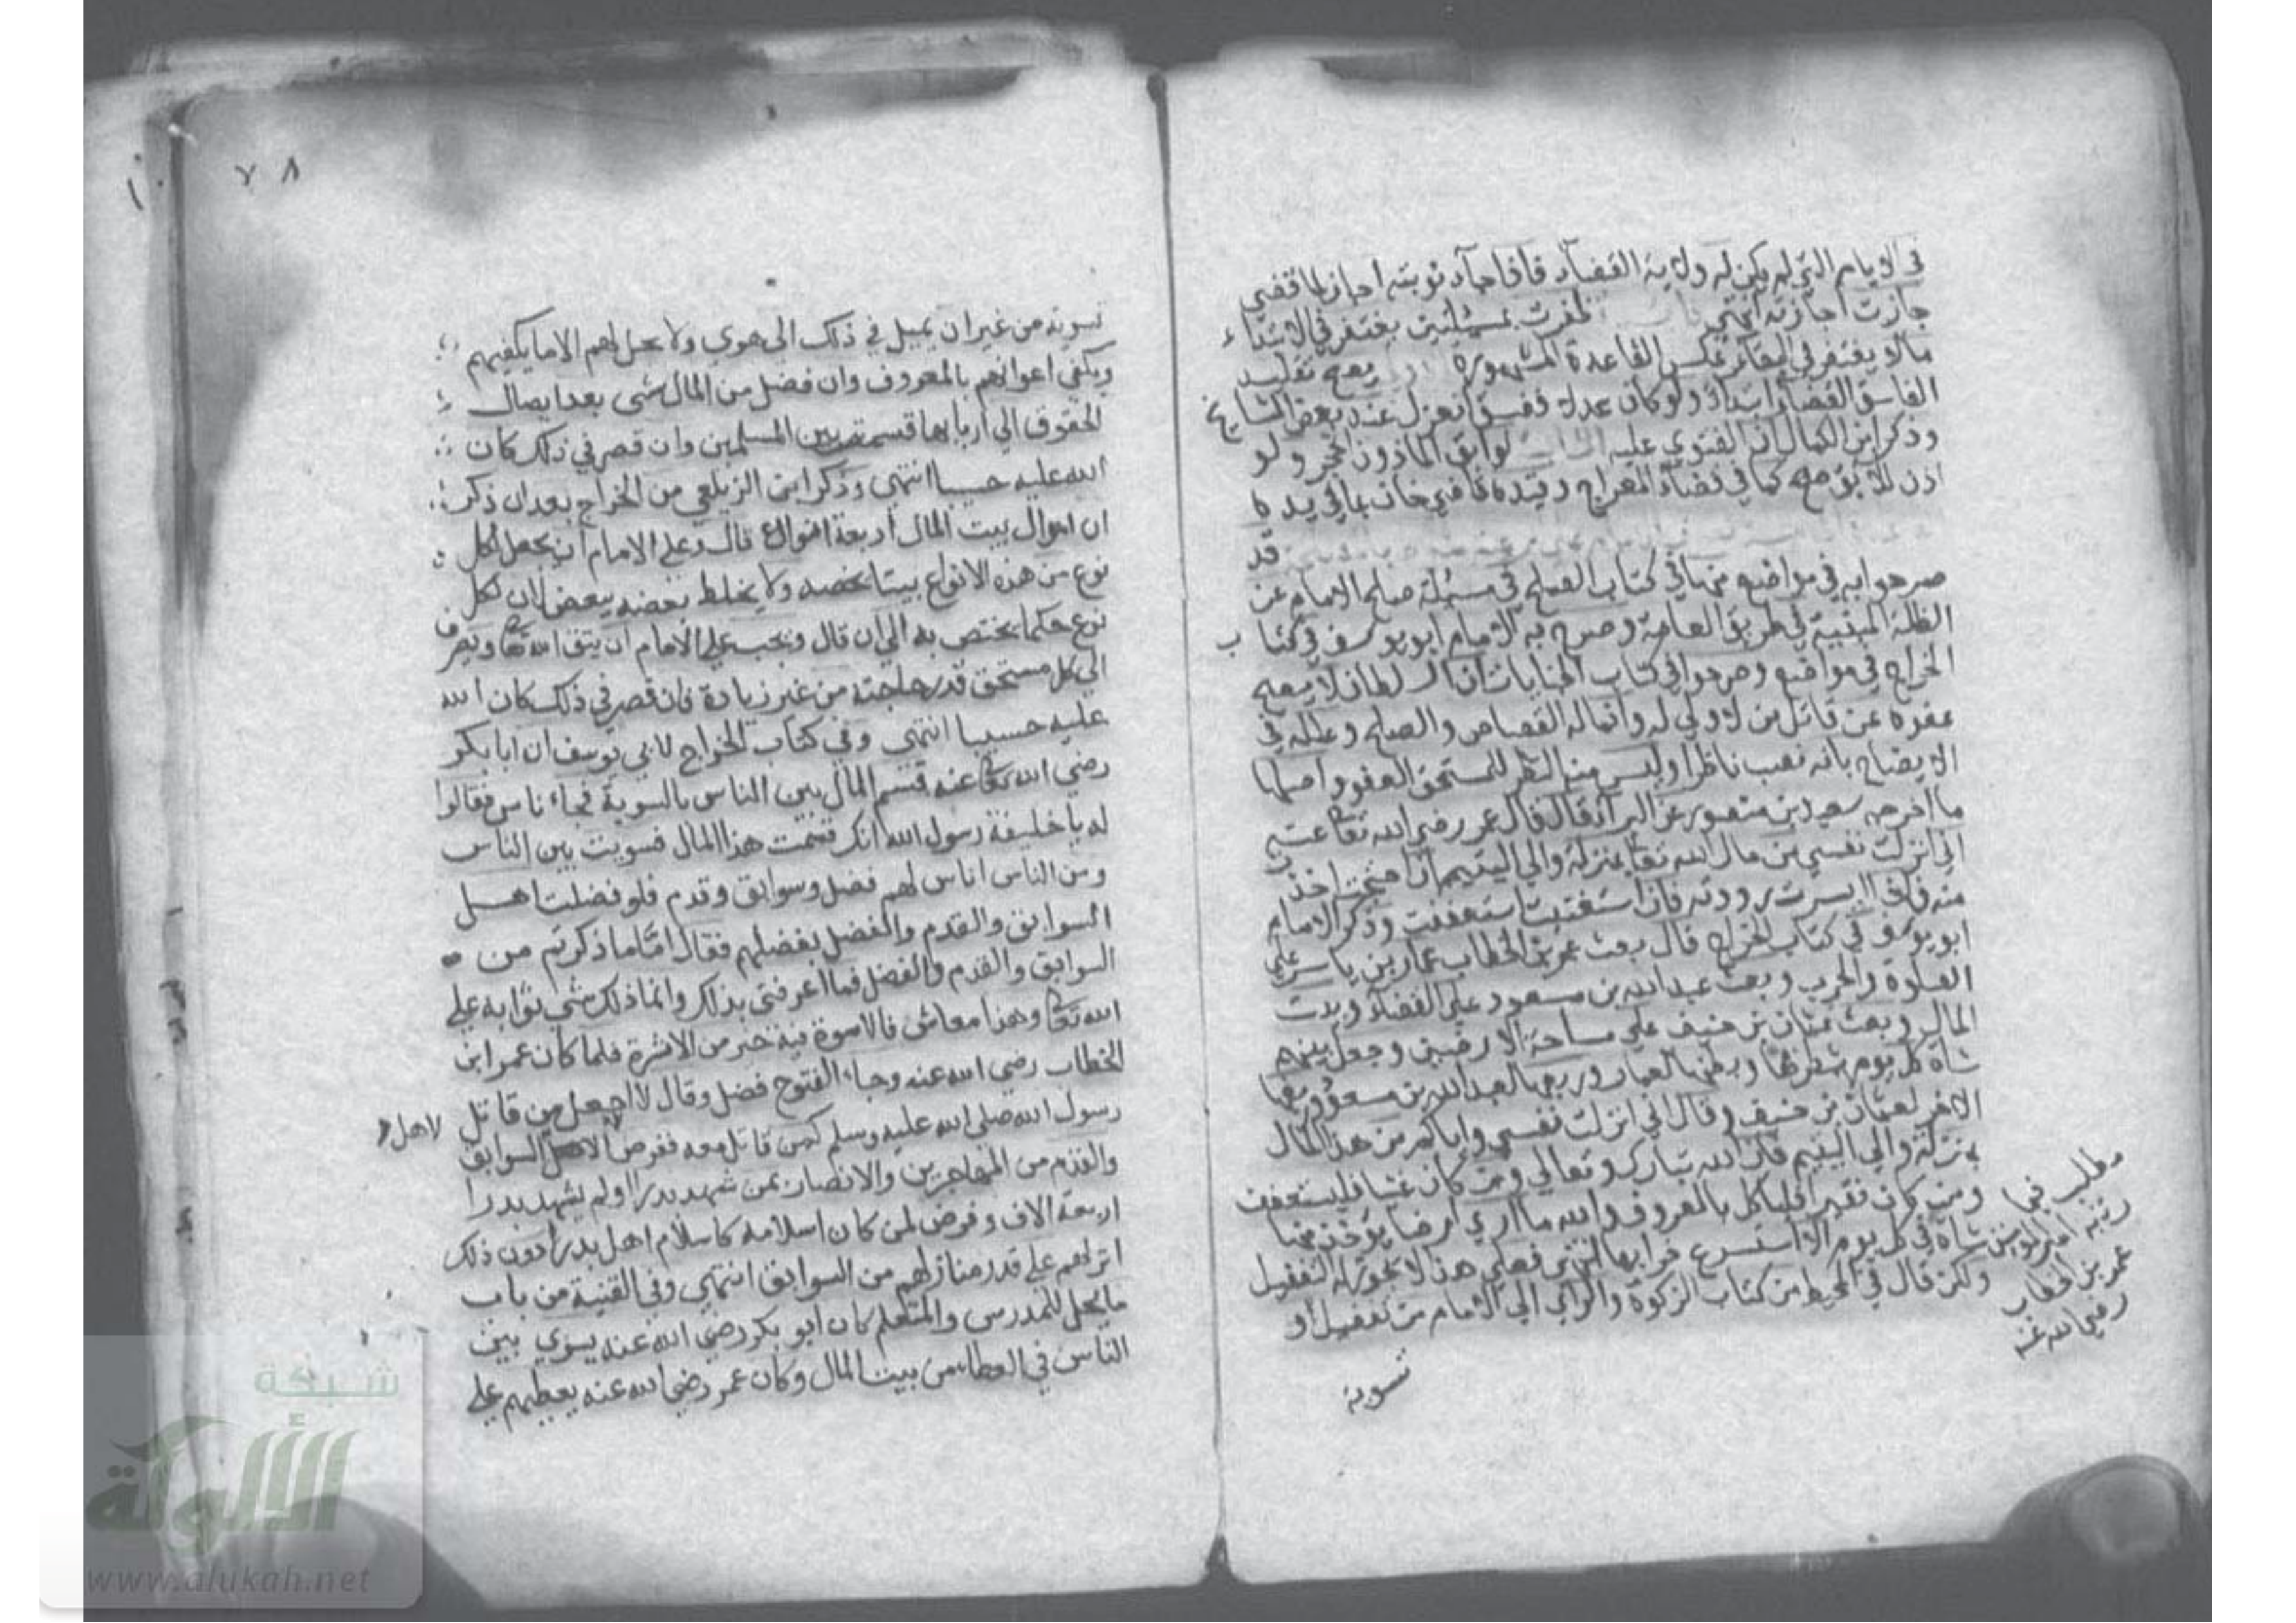 في الايام التي لم يكن له ولاية القضاء فاذا جاءت نوبته اجاز ما قضى
جازت اجازته انتهى ظفرت بمسئلتين يغتفر في الابتداء
مالا يغتفر في البقاء عكس القاعدة المشهورة يصح تقليد
الفاسق القضاء ابتداء ولو كان عدلا ففسق انعزل عند بعض المشايخ
وذكر ابن الكمال ان الفتوى عليه لو ابق الماذون انحجر ولو
اذن للآبق صح كما في قضاء المعراج وقيده قاضي خان بما في يده
قد
صرحوا به في مواضع منها في كتاب الصلح في مسئلة صلح الامام عن
الظلة المبنية في طريق العامة وصرح به الامام ابو يوسف في كتاب
الخراج في مواضع وصرحوا في كتاب الجنايات ان السلطان لا يصح
عفوه عن قاتل من لا ولي له وانما له القصاص والصلح وعلله في
الايضاح بانه نصب ناظرا وليس من النظر للمستحق العفو واصلها
ما اخرجه سعيد بن منصور عن البراء قال قال عمر رضي الله تعا عنه
اني انزلت نفسي من مال الله تعا بمنزلة والي اليتيم ان احتجت اخذت
منه فاذا ايسرت رددته فان استغنيت استعففت وذكر الامام
ابو يوسف في كتاب الخراج قال بعث عمر بن الخطاب عمار بن ياسر على
الصلوة والحرب وبعث عبد الله بن مسعود على القضاء وبيت
المال وبعث عثمان بن حنيف على مساحة الارضين وجعل بينهم
شاة كل يوم شطرها وبطنها لعمار وربعها لعبد الله بن مسعود وربعها
الاخر لعثمان بن حنيف وقال اني انزلت نفسي واياكم من هذا المال
بمنزلة والي اليتيم فان الله تبارك وتعالى ومن كان غنيا فليستعفف
ومن كان فقيرا فلياكل بالمعروف والله ما ارى ارضا يؤخذ منها
شاة في كل يوم الا استسرع خرابها انتهى فعلى هذا لا يجوز له التفضيل
ولكن قال في المحيط من كتاب الزكوة والراي الى الامام من تفضيل او
تسوية
مطلب فيما
رتبه امير المومنين
عمر بن الخطاب
رضي الله عنه
٧٨
١٠
تسوية من غير ان يميل في ذلك الى هوى ولا يحل لهم الا ما يكفيهم
ويكفي اعوانهم بالمعروف وان فضل من المال شي بعد ايصال
الحقوق الى اربابها قسمه بين المسلمين وان قصر في ذلك كان
الله عليه حسيبا انتهى وذكر ابن الزيلعي من الخراج بعد ان ذكر
ان اموال بيت المال اربعة انواع قال وعلى الامام ان يجعل لكل
نوع من هذه الانواع بيتا يخصه ولا يخلط بعضه ببعض لان لكل
نوع حكما يختص به الى ان قال ويجب على الامام ان يتق الله تعا ويصرف
الى كل مستحق قدر حاجته من غير زيادة فان قصر في ذلك كان الله
عليه حسيبا انتهى وفي كتاب الخراج لابي يوسف ان ابا بكر
رضي الله تعا عنه قسم المال بين الناس بالسوية فجاء ناس فقالوا
له يا خليفة رسول الله انك قسمت هذا المال فسويت بين الناس
ومن الناس اناس لهم فضل وسوابق وقدم فلو فضلت اهل
السوابق والقدم والفضل بفضلهم فقال اما ما ذكرتم من
السوابق والقدم والفضل فما اعرفني بذلك وانما ذلك شي ثوابه على
الله تعا وهذا معاش فالاسوة فيه خير من الاثرة فلما كان عمر ابن
الخطاب رضي الله عنه وجاء الفتوح فضل وقال لا اجعل من قاتل
رسول الله صلى الله عليه وسلم كمن قاتل معه ففرض لاهل السوابق
لاهل
والقدم من المهاجرين والانصار ممن شهد بدرا او لم يشهد بدرا
اربعة الاف وفرض لمن كان اسلامه كاسلام اهل بدر دون ذلك
انزلهم على قدر منازلهم من السوابق انتهى وفي القنية من باب
ما يحل للمدرس والمتعلم كان ابو بكر رضي الله عنه يسوي بين
الناس في العطاء من بيت المال وكان عمر رضي الله عنه يعطيهم على
شبكة
الألوكة
www.alukah.net